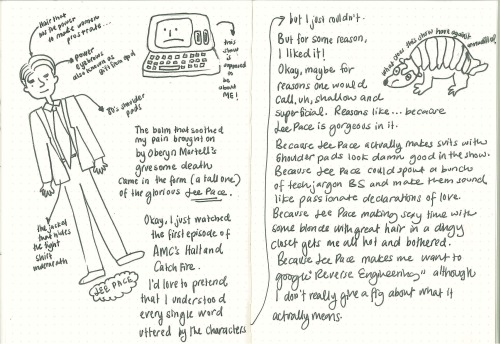 Hair that
has the power
to make women
prostrate...
power
eyebrows
also known as
80's shoulder
pads
the jacket
that hides
the tight
shirt
underneath
LEE PACE
this
show
is
supposed
to be
about
ME!
The balm that soothed
my pain brought on
by Oberyn Martell's
gruesome death
came in the form (a tall one)
of the glorious Lee Pace.
Okay, I just watched
the first episode of
AMC's Halt and
Catch Fire.
I'd love to pretend
that I understood
every single word
uttered by the characters
but I just couldn't.
But for some reason,
I liked it!
Okay, maybe for
reasons one would
call, uh, shallow and
superficial. Reasons like... because
Lee Pace is gorgeous in it.
what does this show have against
armadillos?
Because Lee Pace actually makes suits with
shoulder pads look damn good in the show.
Because Lee Pace could spout a bunch
of tech jargon BS and make them sound
like passionate declarations of love.
Because Lee Pace making sexy time with
some blonde with great hair in a dingy
closet gets me all hot and bothered.
Because Lee Pace makes me want to
google "Reverse Engineering" although
I don't really give a fig about what it
actually means.